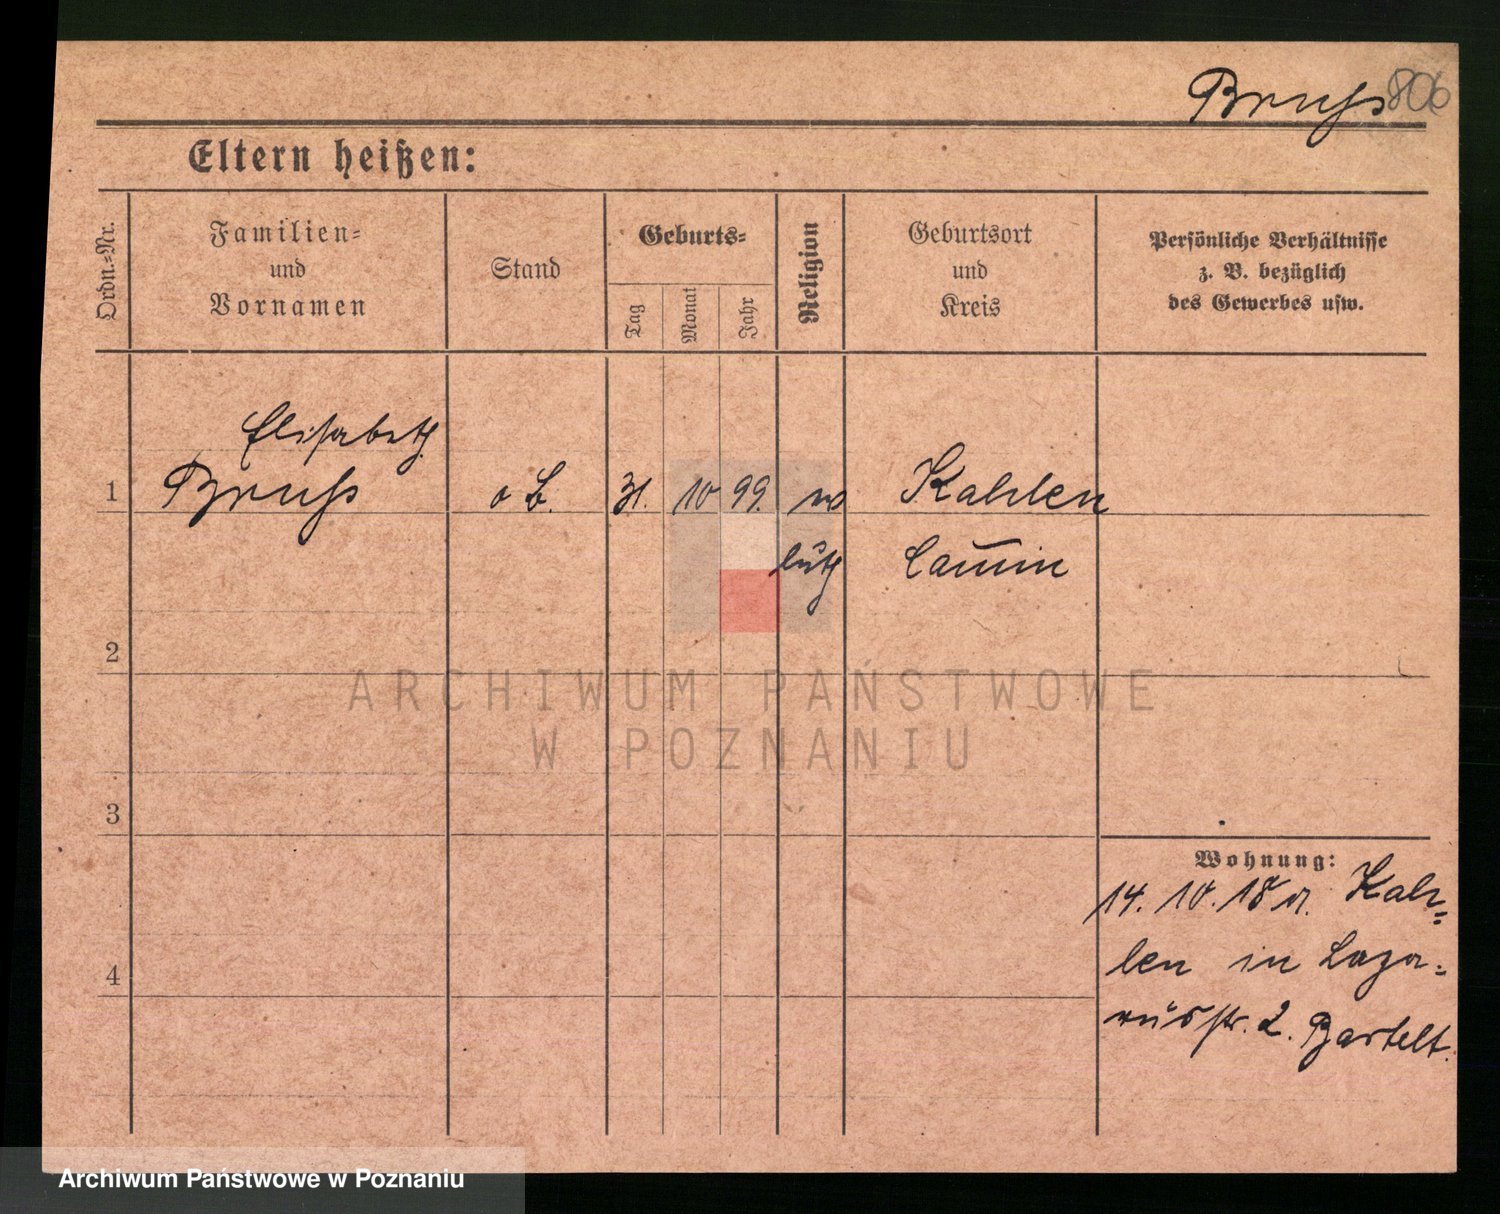 Bruß 806
Eltern heißen:
Ordn.=Nr.
Familien=
und
Vornamen
Stand
Geburts=
Tag
Monat
Jahr
Religion
Geburtsort
und
Kreis
Persönliche Verhältnisse
z. B. bezüglich
des Gewerbes usw.
Elisabeth
1 Bruß o B. 31. 10 99. Kahlen
luth Cammin
2
3
4
Wohnung:
14. 10. 18 v. Kah=
len in Laza=
russtr. 2. Bartelt.
ARCHIWUM PAŃSTWOWE
W POZNANIU
Archiwum Państwowe w Poznaniu